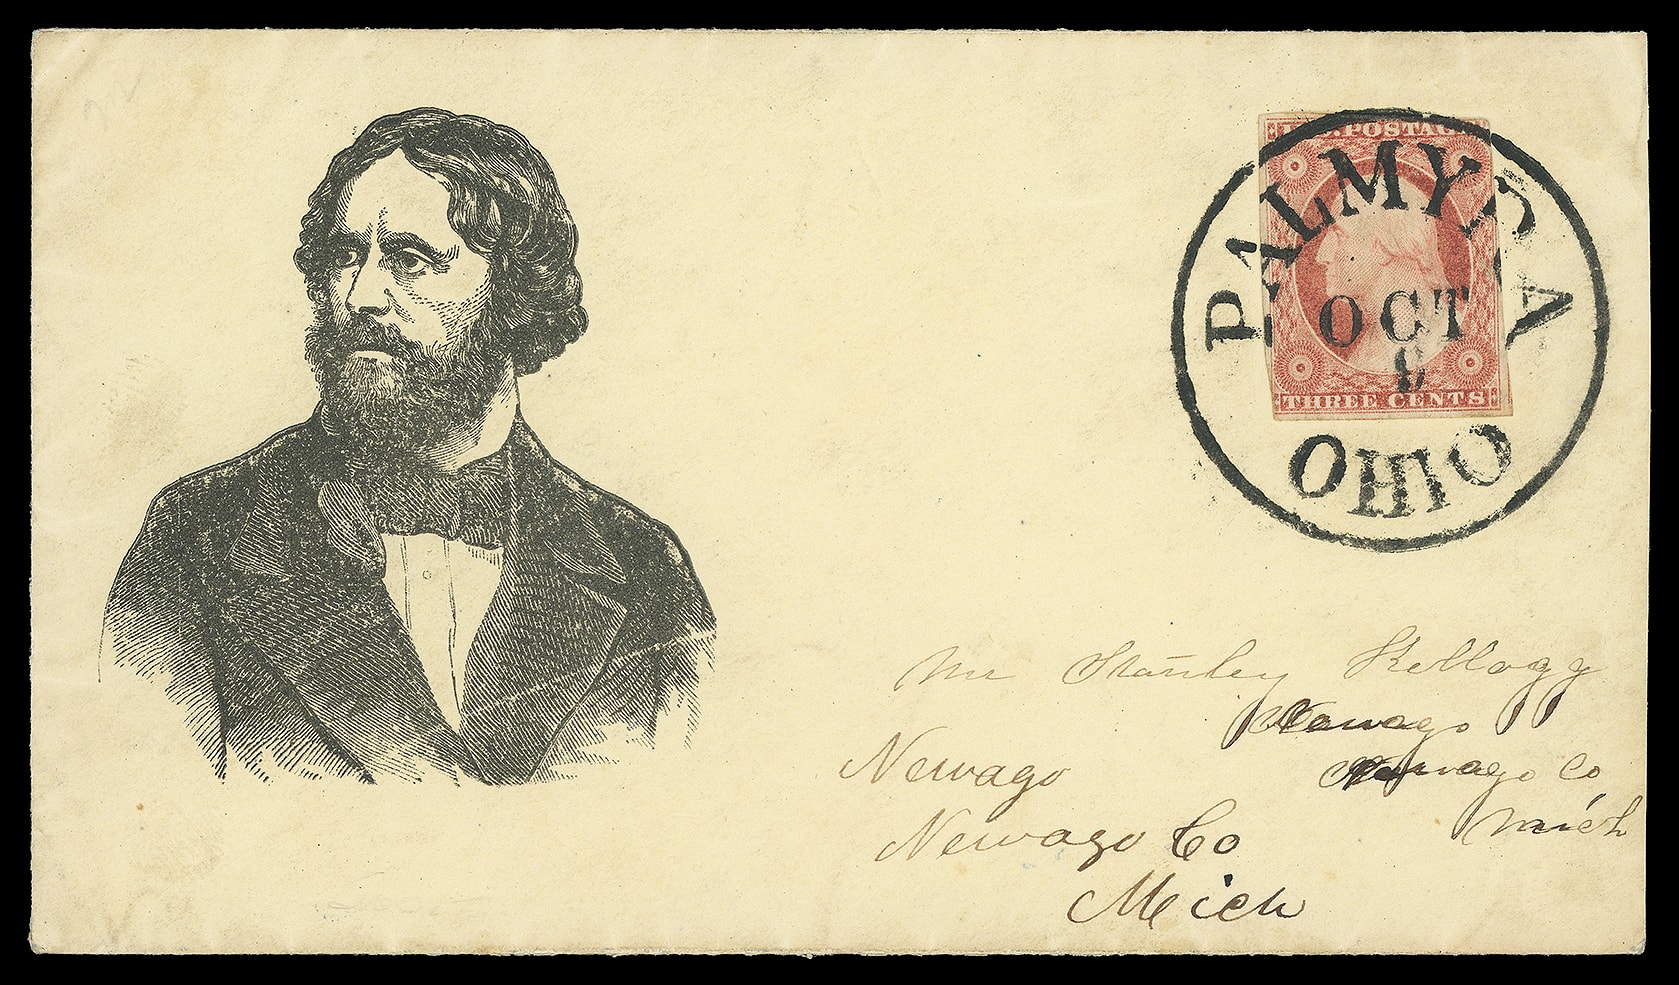 U.S. POSTAGE
PALMYRA
OCT
9
THREE CENTS
OHIO
Mr Stanley Kellogg
Newago
Newago Co
Mich
Newago
Newago Co
Mich